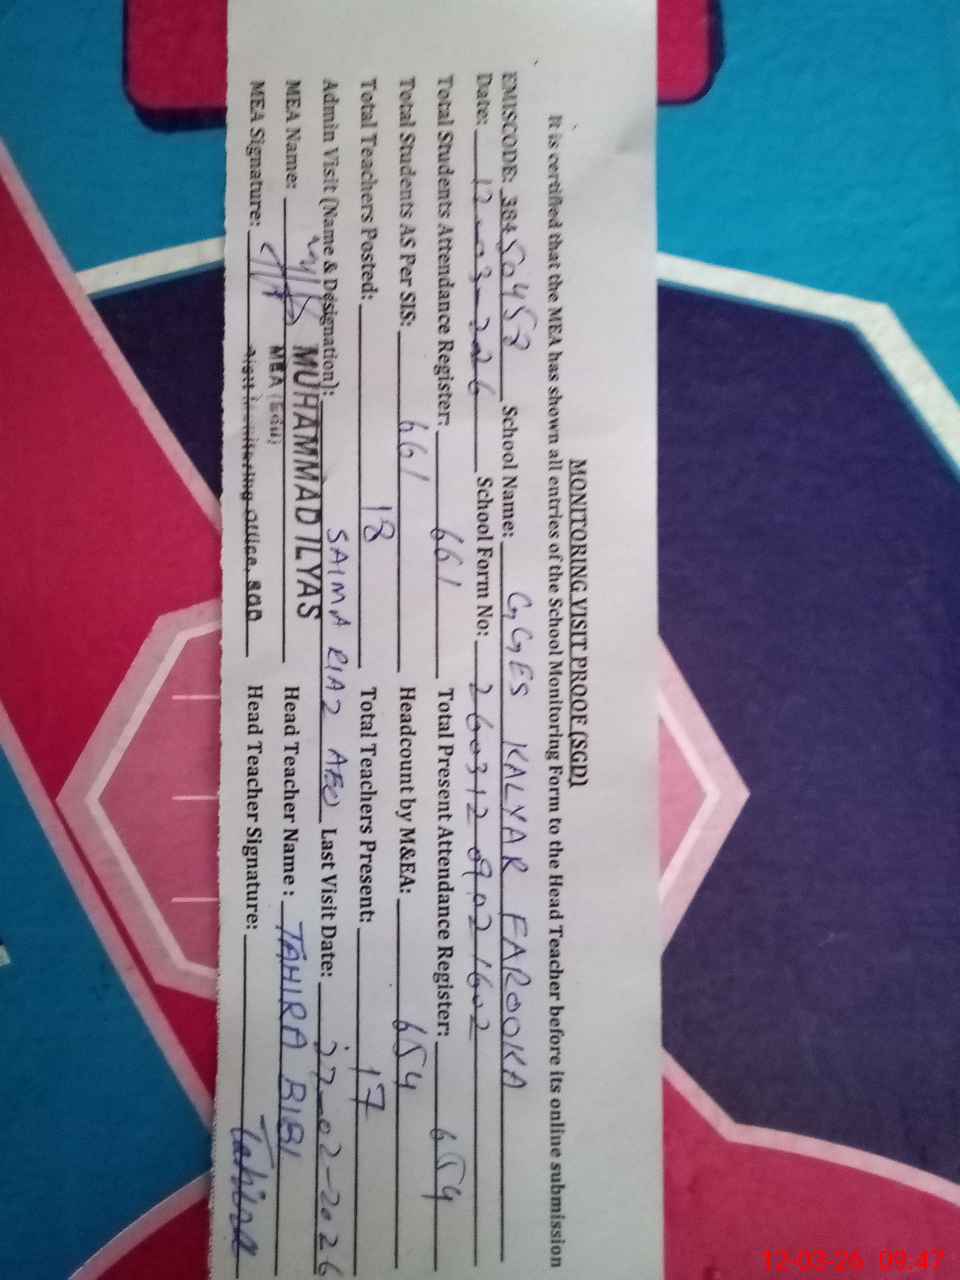 MONITORING VISIT PROOF (SGD)
It is certified that the MEA has shown all entries of the School Monitoring Form to the Head Teacher before its online submission
EMISCODE: 38450458 School Name: GGES KALYAR FAROOKA
Date: 12-03-2026 School Form No: 260312 09021602
Total Students Attendance Register: 661 Total Present Attendance Register: 654
Total Students AS Per SIS: 661 Headcount by M&EA: 654
Total Teachers Posted: 18 Total Teachers Present: 17
Admin Visit (Name & Designation): SAIMA RIAZ AEO Last Visit Date: 27-02-2026
MEA Name: MUHAMMAD ILYAS Head Teacher Name : TAHIRA BIBI
MEA (
MEA Signature: Monitoring Office, SGD Head Teacher Signature: Tahira
12-03-26 09:47